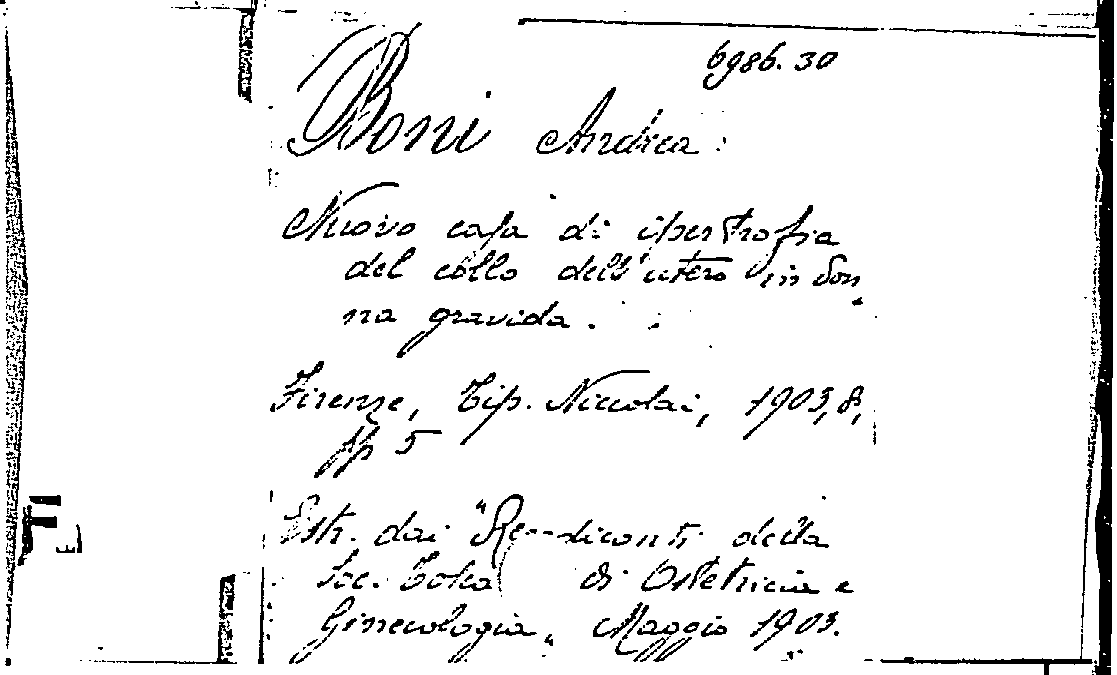 6986.30
Boni Andrea:
Nuovo caso di ipertrofia
del collo dell'utero in don,
na gravida.
Firenze, Tip. Niccolai, 1903, 8,
pp 5
Estr. dai "Rendiconti della
Soc. Tosca di Ostetricia e
Ginecologia„ Maggio 1903.